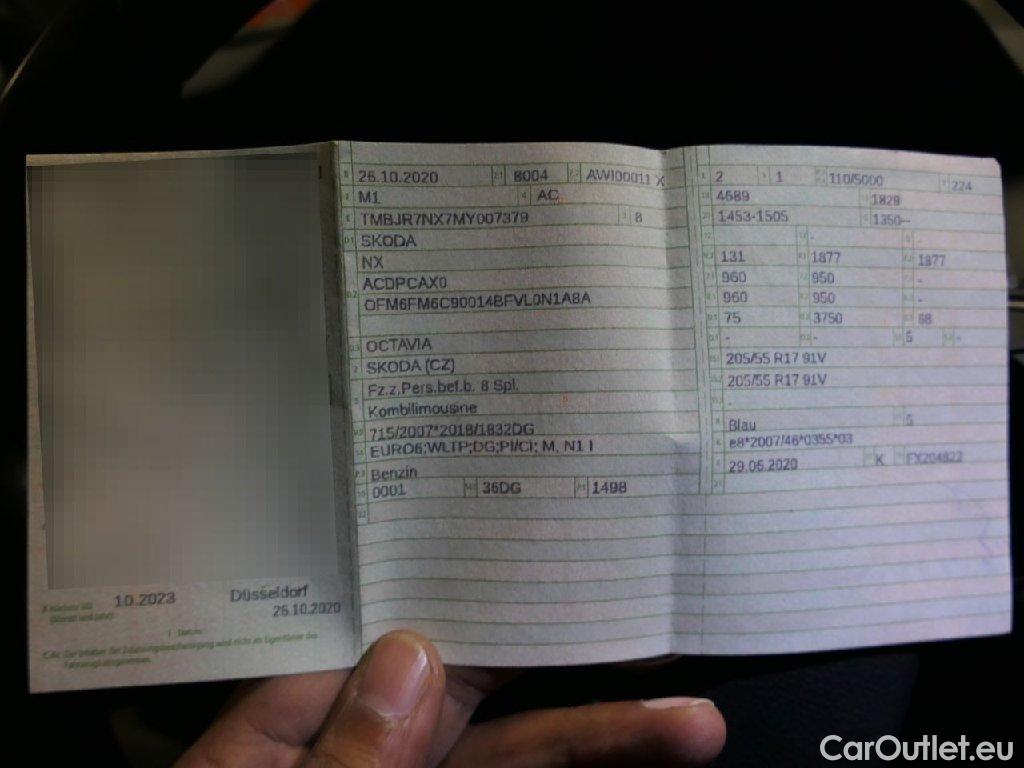 26.10.2020 8004 AWI00011 X
M1 AC
TMBJR7NX7MY007379 8
SKODA
NX
ACDPCAX0
OFM6FM6C90014BFVL0N1A8A
OCTAVIA
SKODA (CZ)
Fz.z.Pers.bef.b. 8 Spl.
Kombilimousine
715/2007*2018/1832DG
EURO6;WLTP;DG;PI/CI; M, N1 I
Benzin
0001 36DG 1498
2 1 110/5000 224
4689 1829
1453-1505 1350--
- -
131 1877 1877
960 950 -
960 950 -
75 3750 68
- - 5 -
205/55 R17 91V
205/55 R17 91V
-
Blau 5
e8*2007/46*0355*03
29.06.2020 K FX204822
10.2023 Düsseldorf
26.10.2020
CarOutlet.eu